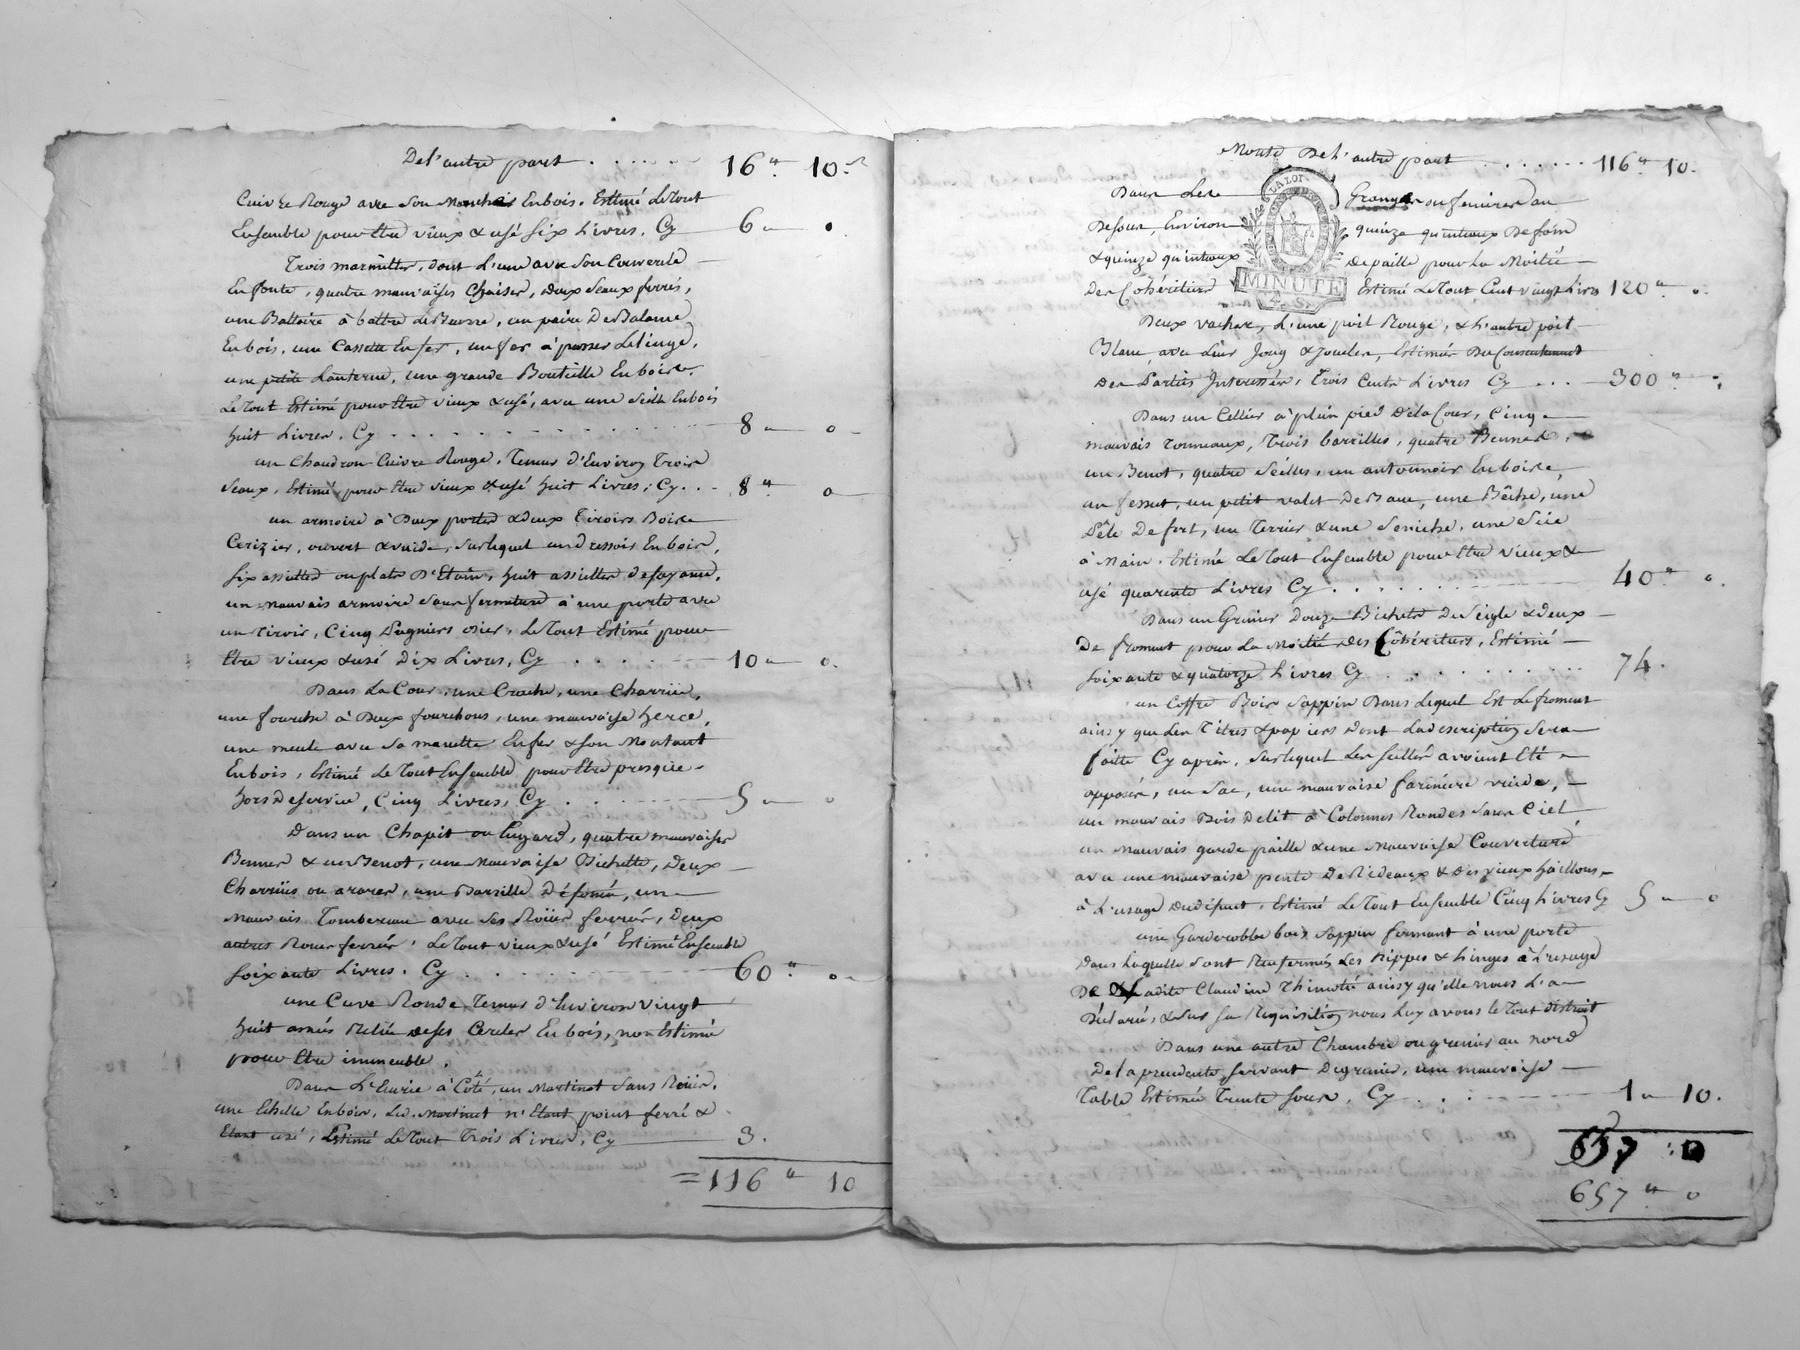 De l'autre part . . . . . . 16 ₶ 10 s
Cuivre Rouge avec son Manche En bois. Estimé Le Tout
Ensemble pour Etre vieux & usé six Livres, Cy 6 " 0
Trois marmittes, dont L'une avec son Couvercle
En fonte, quatre mauvaises Chaises, Deux seaux ferrés,
une Battoire à battre Le Beurre, un paire De Balance
En bois, une Cassette En fer, un fer à passer Le Linge,
une petite Lanterne, une grande Bouteille En bois,
Le Tout Estimé pour Etre vieux & usé, avec une seille En bois
huit Livres, Cy . . . . . . 8 " 0
un Chaudron Cuivre Rouge, Tenus d'Environ Trois
seaux, Estimé pour Etre vieux & usé huit Livres, Cy . . 8 ₶ 0
un armoire à Deux portes & deux Tiroirs Bois de
Cerizier, ouvert & vuide, sur lequel un dressoir En bois,
six assiettes ou plats D'Etain, huit assiettes de fayance,
un mauvais armoire sans fermeture à une porte avec
un Tiroir, Cinq Pagniers osier, Le Tout Estimé pour
Etre vieux & usé Dix Livres, Cy . . . . . 10 " 0.
Dans La Cour, une Croche, une Charrüe,
une fourche à Deux fourchons, une mauvaise herce,
une meule avec sa manette En fer & son Montant
En bois, Estimé Le Tout Ensemble pour Etre presque
hors De service, Cinq Livres, Cy . . . . . 5 " 0
Dans un Chapit ou hugard, quatre mauvaises
Bennes & un Benot, une Mauvaise Bichette, Deux
Charrües ou araires, une Barrille Défoncée, un
Mauvais Tombereau avec ses Roües ferrées, Deux
autres Roues ferrées, Le Tout vieux & usé Estimé Ensemble
soixante Livres, Cy . . . . . . 60 ₶ 0
une Cuve Ronde Tenus d'Environ vingt
huit anées Reliée de ses Cercles En bois, non Estimé
pour Etre immeuble.
Dans L'Ecurie à Côté, un Martinet sans Roües,
une Echelle En bois, Led. Martinet n'Etant point ferré &
Etant usé, Estimé Le Tout Trois Livres, Cy 3.
= 116 ₶ 10
Monte De L'autre part . . . . . . 116 ₶ 10.
LA LOI
MINUTE
4. S.
Dans Les Granges ou feniere au
Dessus, Environ quinze quintaux De foin
& quinze quintaux de paille pour La Moitié
Des Cohéritiers Estimé Le Tout Cent vingt Livres 120 ₶ 0.
Deux vaches, L'une poil Rouge, & L'autre poil
Blanc avec Leur Joug & Joucles, Estimées Du Consentement
Des Parties Interessées, Trois Cents Livres Cy . . . 300 ₶
Dans un Cellier à plein pied De La Cour, Cinq
mauvais Tonneaux, Trois barrilles, quatre Bennes,
un Benot, quatre seilles, un antonnoir En bois,
un fessus, un petit valet De Banc, une Bêche, une
Pêle De fert, un Terrier & une serniche, une Scie
à Main, Estimé Le Tout Ensemble pour Etre vieux &
usé quarante Livres Cy . . . . . . 40 ₶ 0.
Dans un Grenier Douze Bichets De seigle & deux
De froment pour La Moitié des Cohéritiers, Estimé
soixante & quatorze Livres Cy . . . . . . 74.
un Coffre Bois Sappin Dans Lequel Est Le froment
ainsy que Les Titres & papiers Dont La description sera
faite Cy après, sur lequel Les scellés avoient Eté
apposés, un sac, une mauvaise farinière vuide,
un mauvais Bois De lit à Colonnes Rondes sans Ciel,
un Mauvais garde paille & une Mauvaise Couverture
avec une mauvaise pente De Rideaux & Des vieux haillons
à L'usage Du défunt, Estimé Le Tout Ensemble Cinq Livres Cy 5 " 0
une Garderobbe bois sappin fermant à une porte
Dans Laquelle sont Renfermés Les Nippes & Linges à L'usage
De Ladite Claudine Thimotée ainsy qu'elle nous L'a
Déclaré, & sur sa Requisition nous Luy avons Le Tout distrait
Dans une autre Chambre ou grenier au nord
De La precedente servant De grenier, une mauvaise
Table Estimée Trente sous, Cy . . . . . 1 " 10.
657 : 0
657 ₶ 0